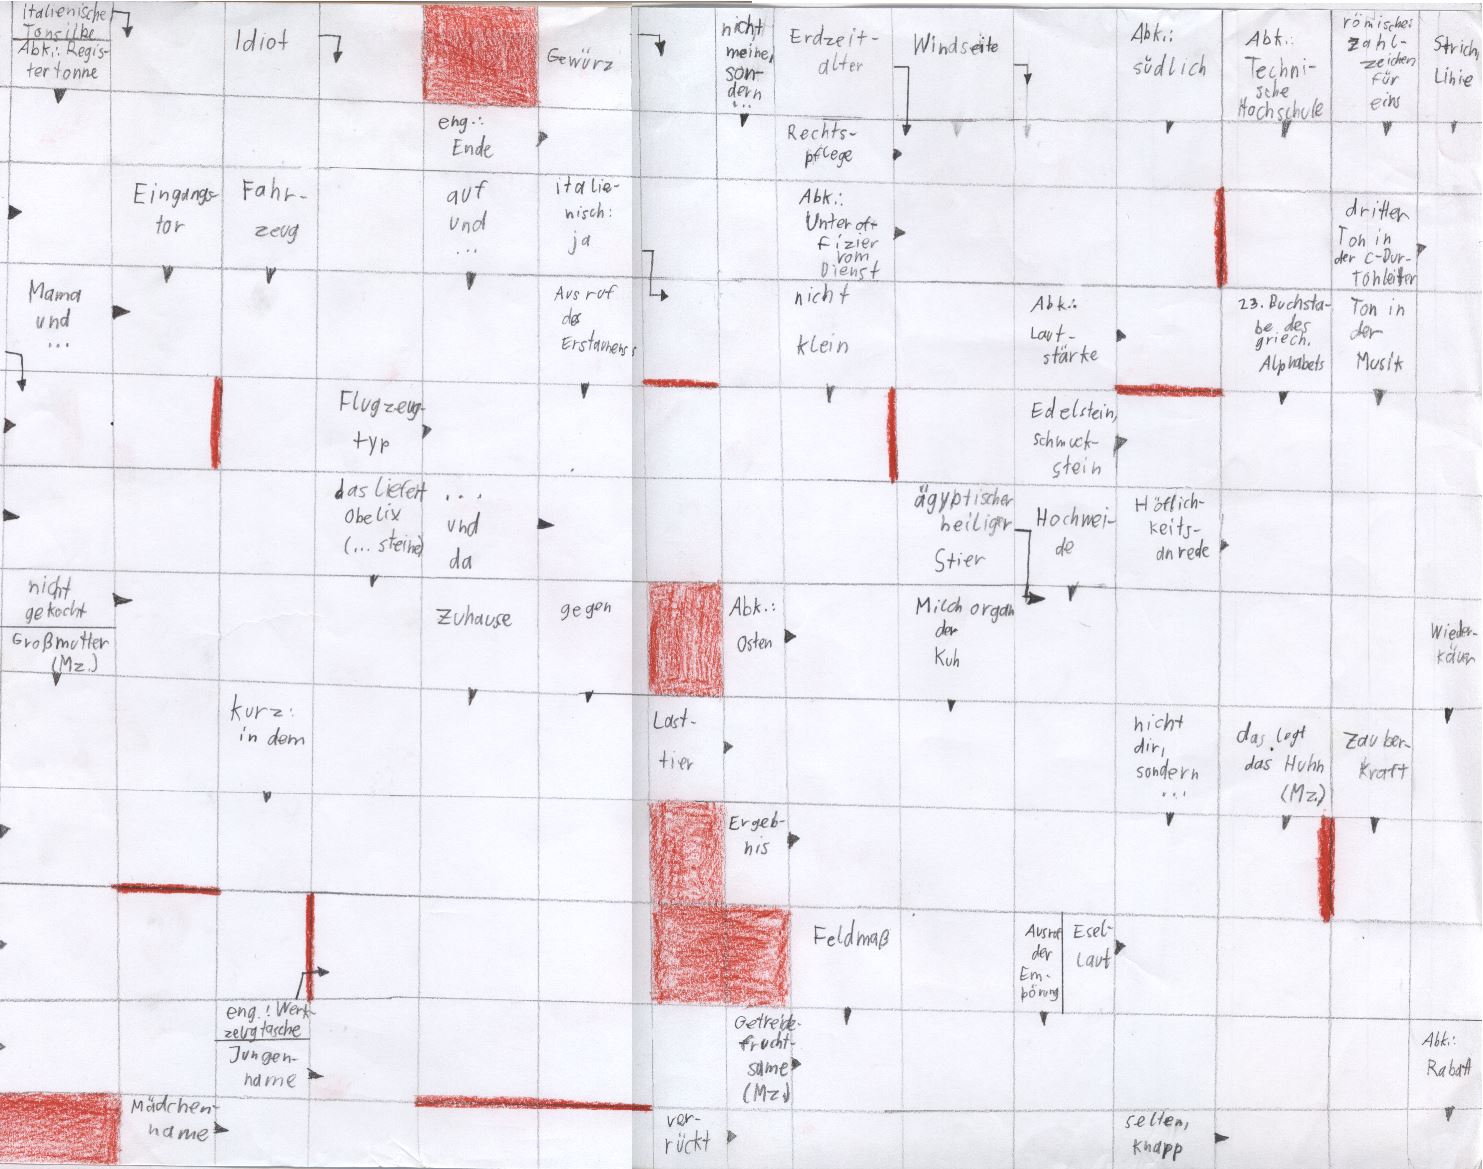 italienische
Tonsilbe
Abk.: Regis-
tertonne
Idiot
Gewürz
nicht
meine,
son-
dern
...
Erdzeit-
alter
Windseite
Abk.:
südlich
Abk.:
Techni-
sche
Hochschule
römisches
Zahl-
zeichen
für
eins
Strich,
Linie
eng.:
Ende
Rechts-
pflege
Eingangs-
tor
Fahr-
zeug
auf
und
...
italie-
nisch:
ja
Abk.:
Unterof-
fizier
vom
Dienst
dritter
Ton in
der C-Dur-
Tonleiter
Mama
und
...
Ausruf
des
Erstaunens
nicht
klein
Abk.:
Laut-
stärke
23. Buchsta-
be des
griech.
Alphabets
Ton in
der
Musik
Flugzeug-
typ
Edelstein,
schmuck-
stein
das liefert
Obelix
(... steine)
...
und
da
ägyptischer
heiliger
Stier
Hochwei-
de
Höflich-
keits-
anrede
nicht
gekocht
Großmutter
(Mz.)
Zuhause
gegen
Abk.:
Osten
Milchorgan
der
Kuh
Wieder-
käuer
kurz:
in dem
Last-
tier
nicht
dir,
sondern
...
das legt
das Huhn
(Mz.)
Zauber-
kraft
Ergeb-
nis
Feldmaß
Ausruf
der
Em-
pörung
Esel-
laut
eng.: Werk-
zeugtasche
Jungen-
name
Getreide-
frucht-
same
(Mz.)
Abk.:
Rabatt
Mädchen-
name
ver-
rückt
selten,
knapp